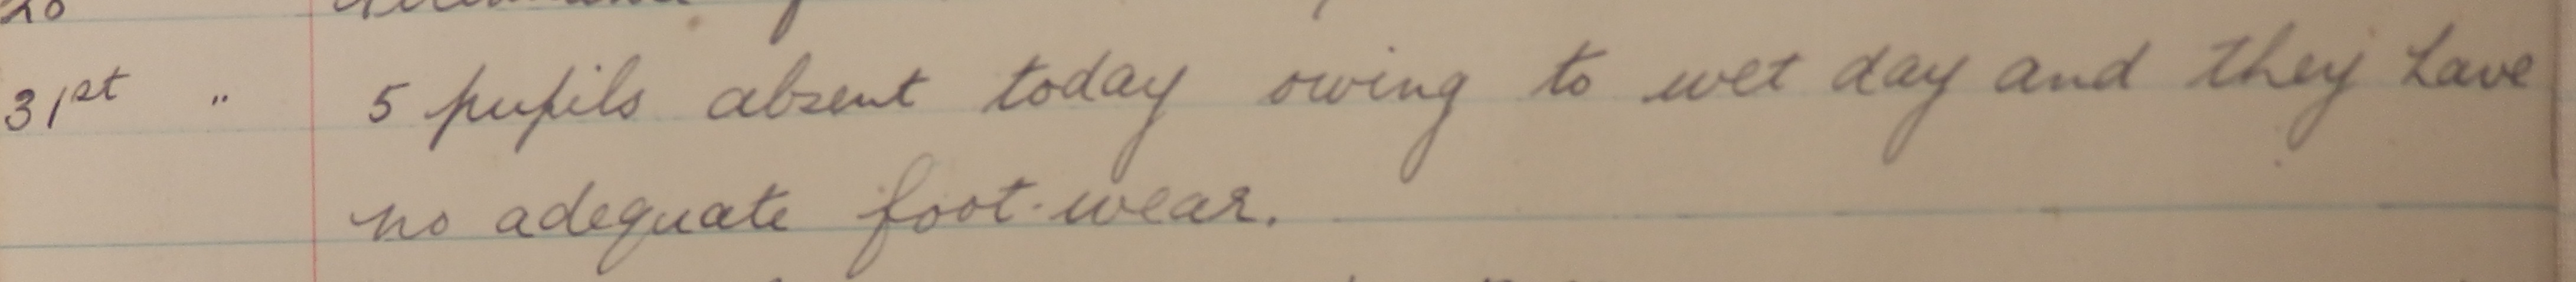 31st " 5 pupils absent today owing to wet day and they have
no adequate foot-wear.